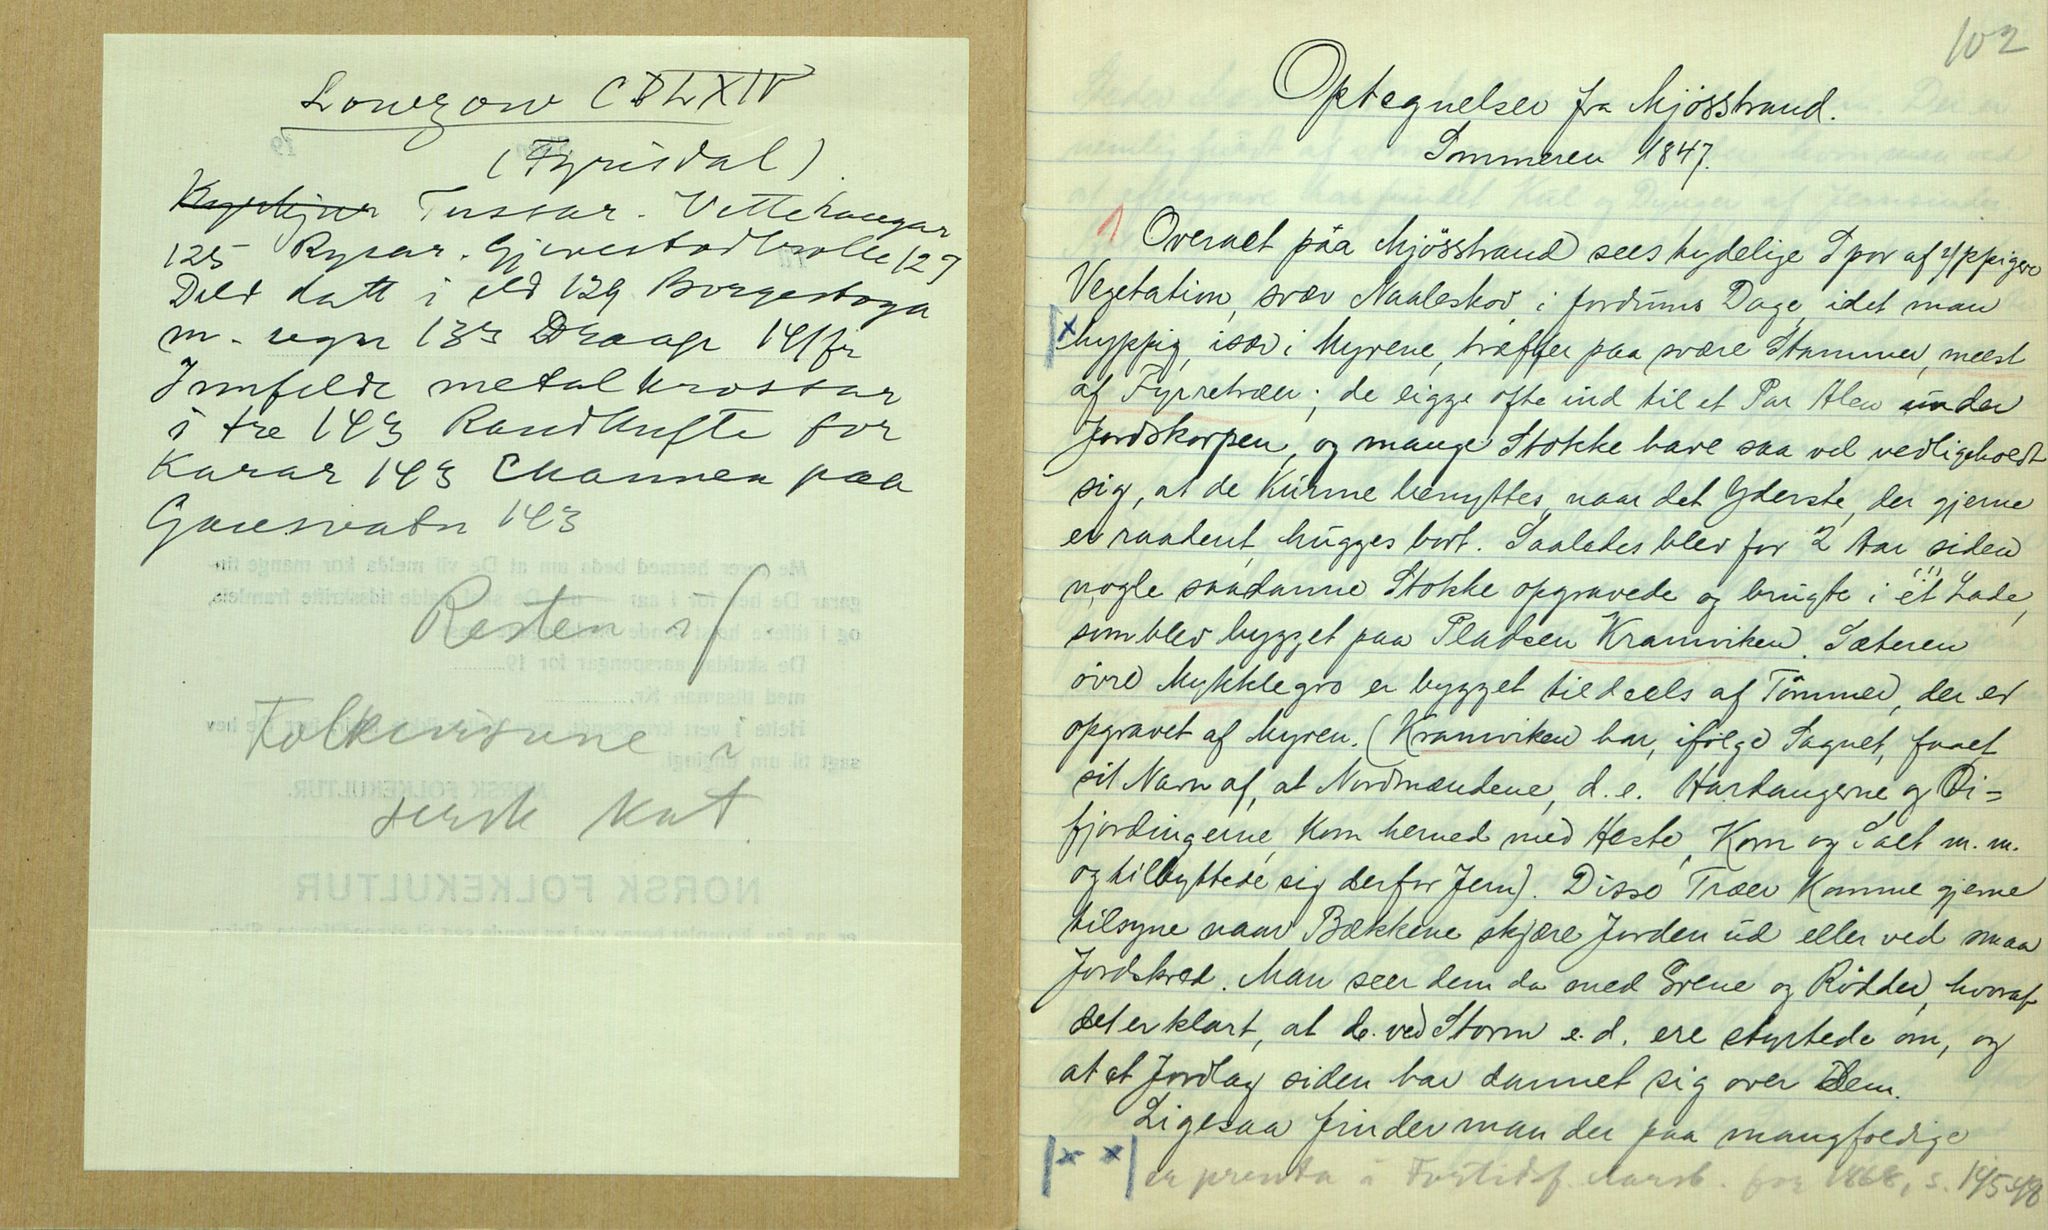 Lowzow CDLXIV
(Fyrisdal).
Tussar. Vettehaugar
125 Rysar. Gjivestadtrolle 129
Dild datt i eld 129 Borgestoga
m. segn 133 Draap 141 fr
Innfelde metalkrossar
i tre 143 Randknfte for
Karar 143 Mannen paa
Gausvatn 143
Resten af
Folkeminne
sersk kat.
NORSK FOLKEKULTUR
102
Optegnelser fra Mjösstrand.
Sommeren 1847.
1 Overalt páa Mjösstrand sees tydelige Spor af yppigere
Vegetation, svær Naaleskov, i fordums Dage, idet man
x hyppig, især i Myrene, træffer paa svære Stammer, meest
af Fyrretræer; de ligge ofte ind til et Par Alen under
Jordskorpen, og mange Stokke have saa vel vedligeholdt
sig, at de kunne benyttes, naar det Yderste, der gjerne
er raadent, hugges bort. Saaledes blev for 2 Aar siden
nogle saadanne Stokke opgravede og brugte i et (!) Lade,
som blev bygget paa Pladsen Kramviken. Sæteren
øvre Mykklegro er bygget tildeels af Tömmer, der er
opgravet af Myren. (Kramviken har, ifølge Sagnet, faaet
sit Navn af, at Nordmændene, d. e. Hardangerne og Ei-
fjordingerne, kom herned med Heste, Korn og Salt m. m.
og tilbyttede sig derfor Jern). Disse Træer komme gjerne
tilsyne naar Bækkene skjære Jorden ud eller ved smaa
Jordskred. Man seer dem da med Grene og Rödder, hvoraf
det er klart, at de ved Storm e. d. ere styrtede om, og
at et Jordlag siden har dannet sig over dem.
Ligesaa finder man der paa mangfoldige
x x er prenta i Fortidsf. Aarsb. for 1868, s. 145-48